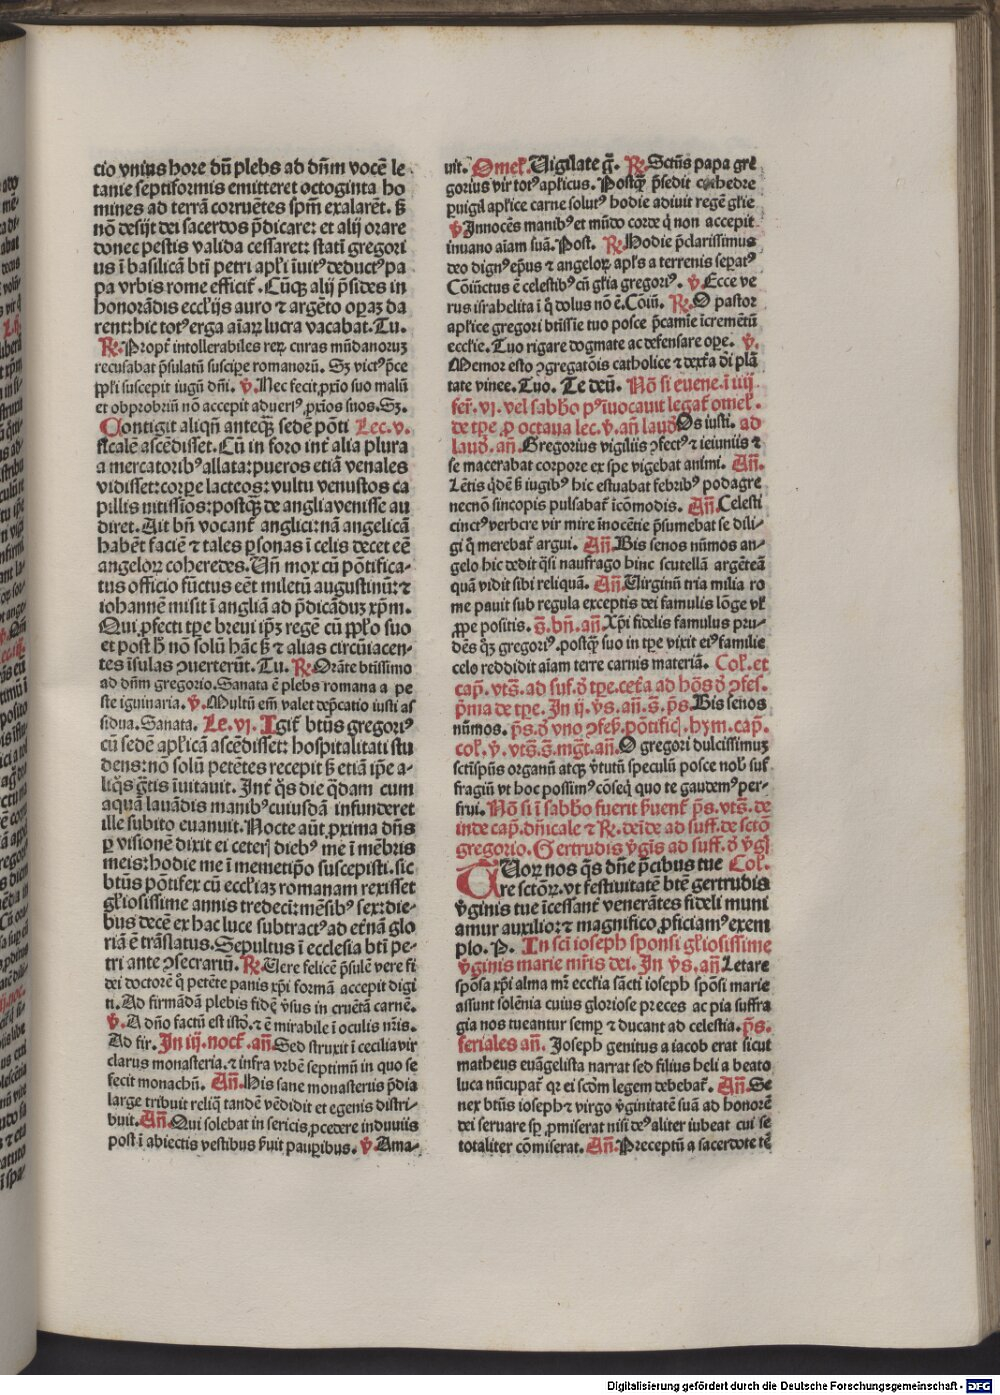 cio vnius hore dū plebs ad dn̄m vocē le
tanie septiformis emitteret octoginta ho
mines ad terrā corruētes spm̄ exalarēt. ꝫ
nō desijt dei sacerdos p̄dicare: et alij orare
donec pestis valida cessaret: statī gregori
us ī basilicā bt̄i petri apl̄i īuitꝰ deductꝰ pa
pa vrbis rome efficit̄. Cūqꝫ alij p̄sides in
honorādis eccl̄ijs auro ⁊ argēto operā da
rent: hic totꝰ erga aīaꝝ lucra vacabat. Tu.
℟. Propt̄ intollerabiles reꝝ curas mūdanoruꝫ
recusabat p̄sulatū suscipe romanorū. Sꝫ victꝰ p̄ce
ppl̄i suscepit iugū dn̄i. ℣. Nec fecit proxīo suo malū
et obprobriū nō accepit aduerꝰ proxīos suos. Sꝫ.
Contigit aliqn̄ anteqꝫ sedē pōti Lec. v.
ficalē ascēdisset. Cū in foro int̄ alia plura
a mercatoribꝰ allata: pueros etiā venales
vidisset: corpe lacteos: vultu venustos ca
pillis nitissīos: postqꝫ de anglia venisse au
diret. Ait bn̄ vocant̄ anglici: nā angelicā
habēt faciē ⁊ tales psonas ī celis decet eē
angeloꝝ coheredes. Vn̄ mox cū pōtifica-
tus officio fūctus eēt miletū augustinū: ⁊
iohannē misit ī angliā ad p̄dicāduꝫ xp̄m.
Qui pfecti tpe breui ipꝫ regē cū pplo suo
et post h̄ nō solū hāc ꝫ ⁊ alias circūiacen-
tes īsulas ꝯuerterūt. Tu. ℟. Orāte btīssimo
ad dn̄m gregorio. Sanata ē plebs romana a pe
ste iguinaria. ℣. Multū em̄ valet dep̄catio iusti as
sidua. Sanata. Le. vj. Igit̄ bt̄us gregoriꝰ
cū sedē apl̄icā ascēdisset: hospitalitati stu
dens: nō solū petētes recepit ꝫ etiā ip̄e a-
liq̄s ḡtis īuitauit. Int̄ q̄s die q̄dam cum
aquā lauādis manibꝰ cuiusdā infunderet
ille subito euanuit. Nocte aūt proxima dn̄s
p visionē dixit ei ceterꝭ diebꝰ me ī mēbris
meis: hodie me ī memetipō suscepisti. sic
bt̄us pōtifex cū eccl̄iaꝫ romanam rexisset
gl̄iosissime annis tredeci: mēsibꝰ sex: die-
bus decē ex hac luce subtractꝰ ad et̄nā glo
riā ē trāslatus. Sepultus ī ecclesia bt̄i pe-
tri ante ꝯsecrariū. ℟. Vere felicē p̄sulē vere fi
dei doctorē q̄ petēte panis xp̄i formā accepit digi
ti. Ad firmādā plebis fidē v̄sius in cruētā carnē.
℣. A dn̄o factū est istō. ⁊ ē mirabile ī oculis nr̄is.
Ad fir. In iij. noct̄. an̄. Sed struxit ī cecilia vir
clarus monasteria. ⁊ infra vrbē septimū in quo se
fecit monachū. An̄. His sane monasterijs p̄dia
large tribuit reliq̄ tandē vēdidit et egenis distri-
buit. An̄. Qui solebat in sericis pcedere induuijs
post ī abiectis vestibus s̄uit paupibus. ℣. Ama-
uit. Omel̄. Vigilate q̄. ℟. Sctūs papa gre
gorius vir totꝰ apl̄icus. Postqꝫ p̄sedit cathedre
puigil apl̄ice carne solutꝰ hodie adiuit regē gl̄ie
℣. Innocēs manibꝰ et mūdo corde q̄ non accepit
inuano aīam suā. Post. ℟. Hodie p̄clarissimus
deo dignꝰ ep̄us ⁊ angeloꝝ apl̄s a terrenis sepatꝰ
Cōiūctus ē celestibꝰ cū gl̄ia gregoriꝰ. ℣. Ecce ve
rus israhelita ī q̄ dolus nō ē. Cōiū. ℟. O pastor
apl̄ice gregori bt̄issīe tuo posce p̄camīe īcremētū
eccl̄ie. Tuo rigare dogmate ac defensare ope. ℣.
Memor esto ꝯgregatōis catholice ⁊ dext̄a di plā
tate vinee. Tuo. Te deū. Nō si euene. ī iiij
fer̄. vj. vel sabb̄o pꝰ īuocauit legat̄ omel̄.
de tpe p octaua lec. v. an̄ laud̄ Os iusti. ad
laud̄. an̄. Gregorius vigilijs ꝯfectꝰ ⁊ ieiunijs ⁊
se macerabat corpore ex spe vigebat animi. An̄.
Lētis q̄dē ꝫ iugibꝰ hic estuabat febribꝰ podagre
necnō sincopis pulsabat̄ īcōmodis. An̄. Celesti
cinctꝰ verbere vir mire inocētie p̄sumebat se dili-
gi q̄ merebat̄ argui. An̄. Bis senos nūmos an-
gelo hic dedit q̄si naufrago hinc scutellā argēteā
quā vidit sibi reliquā. An̄. Virginū tria milia ro
me pauit sub regula exceptis dei famulis lōge vl̄
ppe positis. s̄. bn̄. an̄. Xp̄i fidelis famulus pru-
dēs qꝫ gregoriꝰ. postqꝫ suo in tpe vixit eiꝰ familie
celo reddidit aīam terre carnis materiā. Col̄. et
cap̄. vts̄. ad suf. d̄ tpe. cet̄a ad hōs d̄ ꝯfes.
p̄nia de tpe. In ij. v̄s. an̄. s̄. p̄s. Bis senos
nūmos. p̄s. d̄ vno ꝯfes. pōtific̄. hym. cap̄.
col̄. ℣. vts̄. s̄. mḡt. an̄. O gregori dulcissimuꝫ
sct̄isp̄us organū atqꝫ v̄tutū speculū posce nob̄ suf
fragiū vt hoc possimꝰ cōseq̄ quo te gaudemꝰ per-
frui. Nō si ī sabb̄o fuerit p̄uent̄ p̄s. vts̄. de
inde cap̄. dn̄icale ⁊ ℟. deīde ad suff. de sctō
gregorio. Gertrudis v̄gīs ad suff. d̄ v̄gī
TUor nos q̄s dn̄e p̄cibus tue Col̄.
re sctōꝝ. vt festiuitatē btē̄ gertrudis
v̄ginis tue īcessant̄ venerātes fideli muni
amur auxilio: ⁊ magnifico pficiamꝰ exem
plo. P. In sci̅ ioseph sponsi gl̄iosissime
v̄ginis marie mr̄is dei. In v̄s. an̄ Letare
spōsa xp̄i alma mr̄ eccl̄ia sācti ioseph spōsi marie
assunt solēnia cuius gloriose preces ac pia suffra
gia nos tueantur semp ⁊ ducant ad celestia. p̄s.
feriales an̄. Joseph genitus a iacob erat sicut
matheus euāgelista narrat sed filius heli a beato
luca nūcupat̄ qr ei scd̄m legem debebat̄. An̄. Se
nex bt̄us ioseph ⁊ virgo v̄ginitatē suā ad honorē
dei seruare sp̄ pmiserat nisi deꝰ aliter iubeat cui se
totaliter cōmiserat. An̄. Preceptū a sacerdote tē
Digitalisierung gefördert durch die Deutsche Forschungsgemeinschaft - DFG